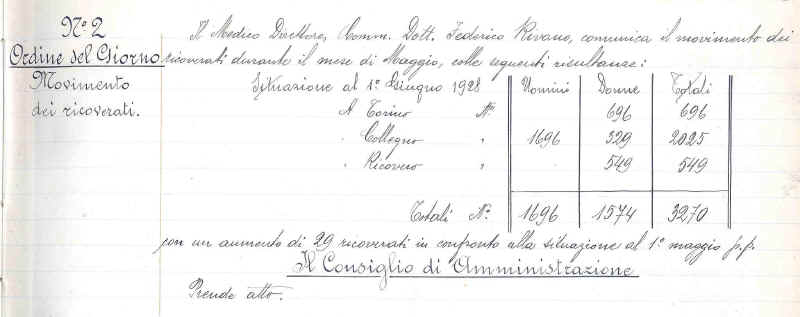 N.° 2
Ordine del Giorno
Movimento
dei ricoverati.
Il Medico Direttore, Comm. Dott. Federico Rivano, comunica il movimento dei
ricoverati durante il mese di Maggio, colle seguenti risultanze:
Situazione al 1° Giugno 1928 Uomini Donne Totali
A Torino N.° 696 696
" Collegno " 1696 329 2025
" Ricovero " 549 549
Totali N.° 1696 1574 3270
con un aumento di 29 ricoverati in confronto alla situazione al 1° maggio p.p.
Il Consiglio di Amministrazione
Prende atto.